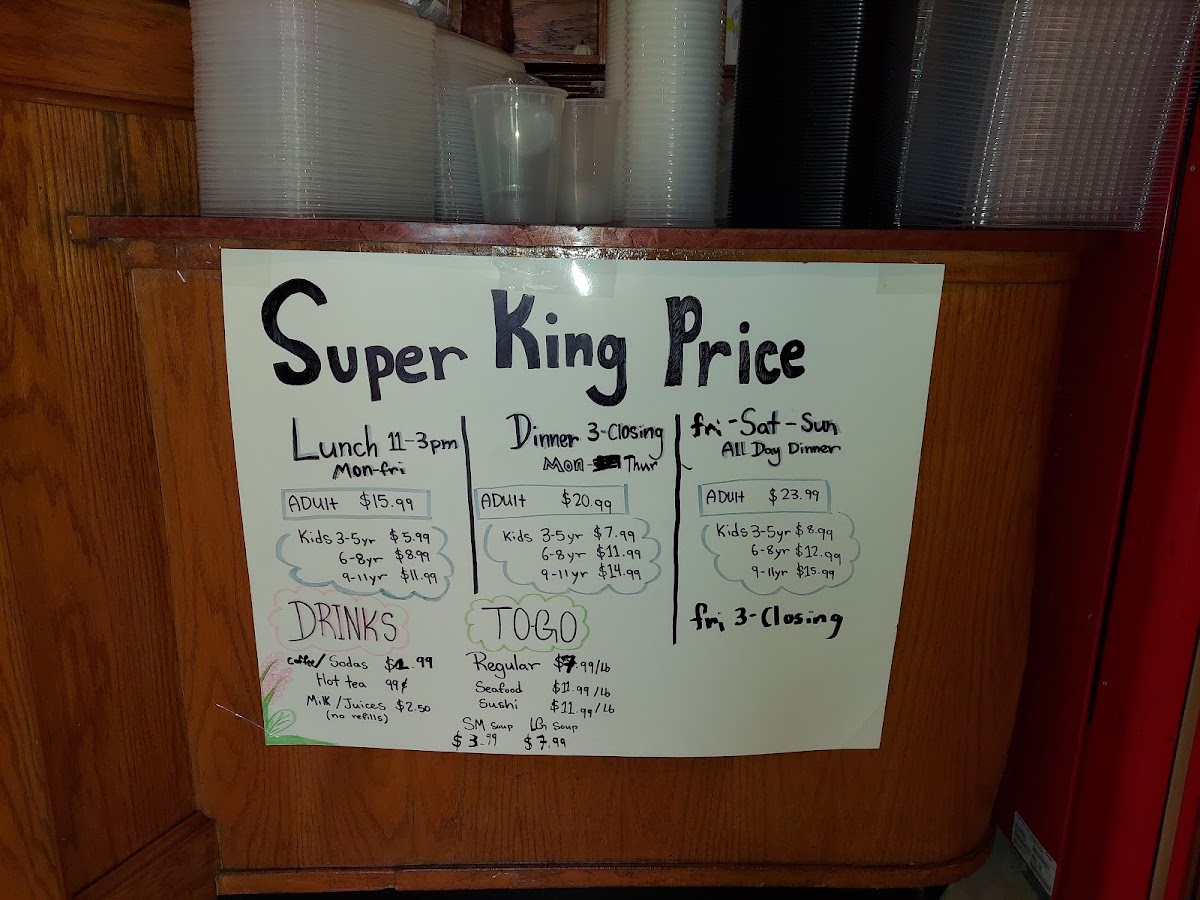 Super King Price
Lunch 11-3pm
Mon-fri
ADULT $15.99
Kids 3-5yr $5.99
6-8yr $8.99
9-11yr $11.99
Dinner 3-Closing
Mon- Thur
ADULT $20.99
Kids 3-5yr $7.99
6-8yr $11.99
9-11yr $14.99
fri-Sat-Sun
All Day Dinner
ADULT $23.99
Kids 3-5yr $8.99
6-8yr $12.99
9-11yr $15.99
fri 3-Closing
DRINKS
coffee/Sodas $1.99
Hot tea 99¢
Milk/Juices $2.50
(no refills)
TO-GO
Regular $7.99/lb
Seafood $11.99/lb
Sushi $11.99/lb
SM Soup LG Soup
$3.99 $7.99